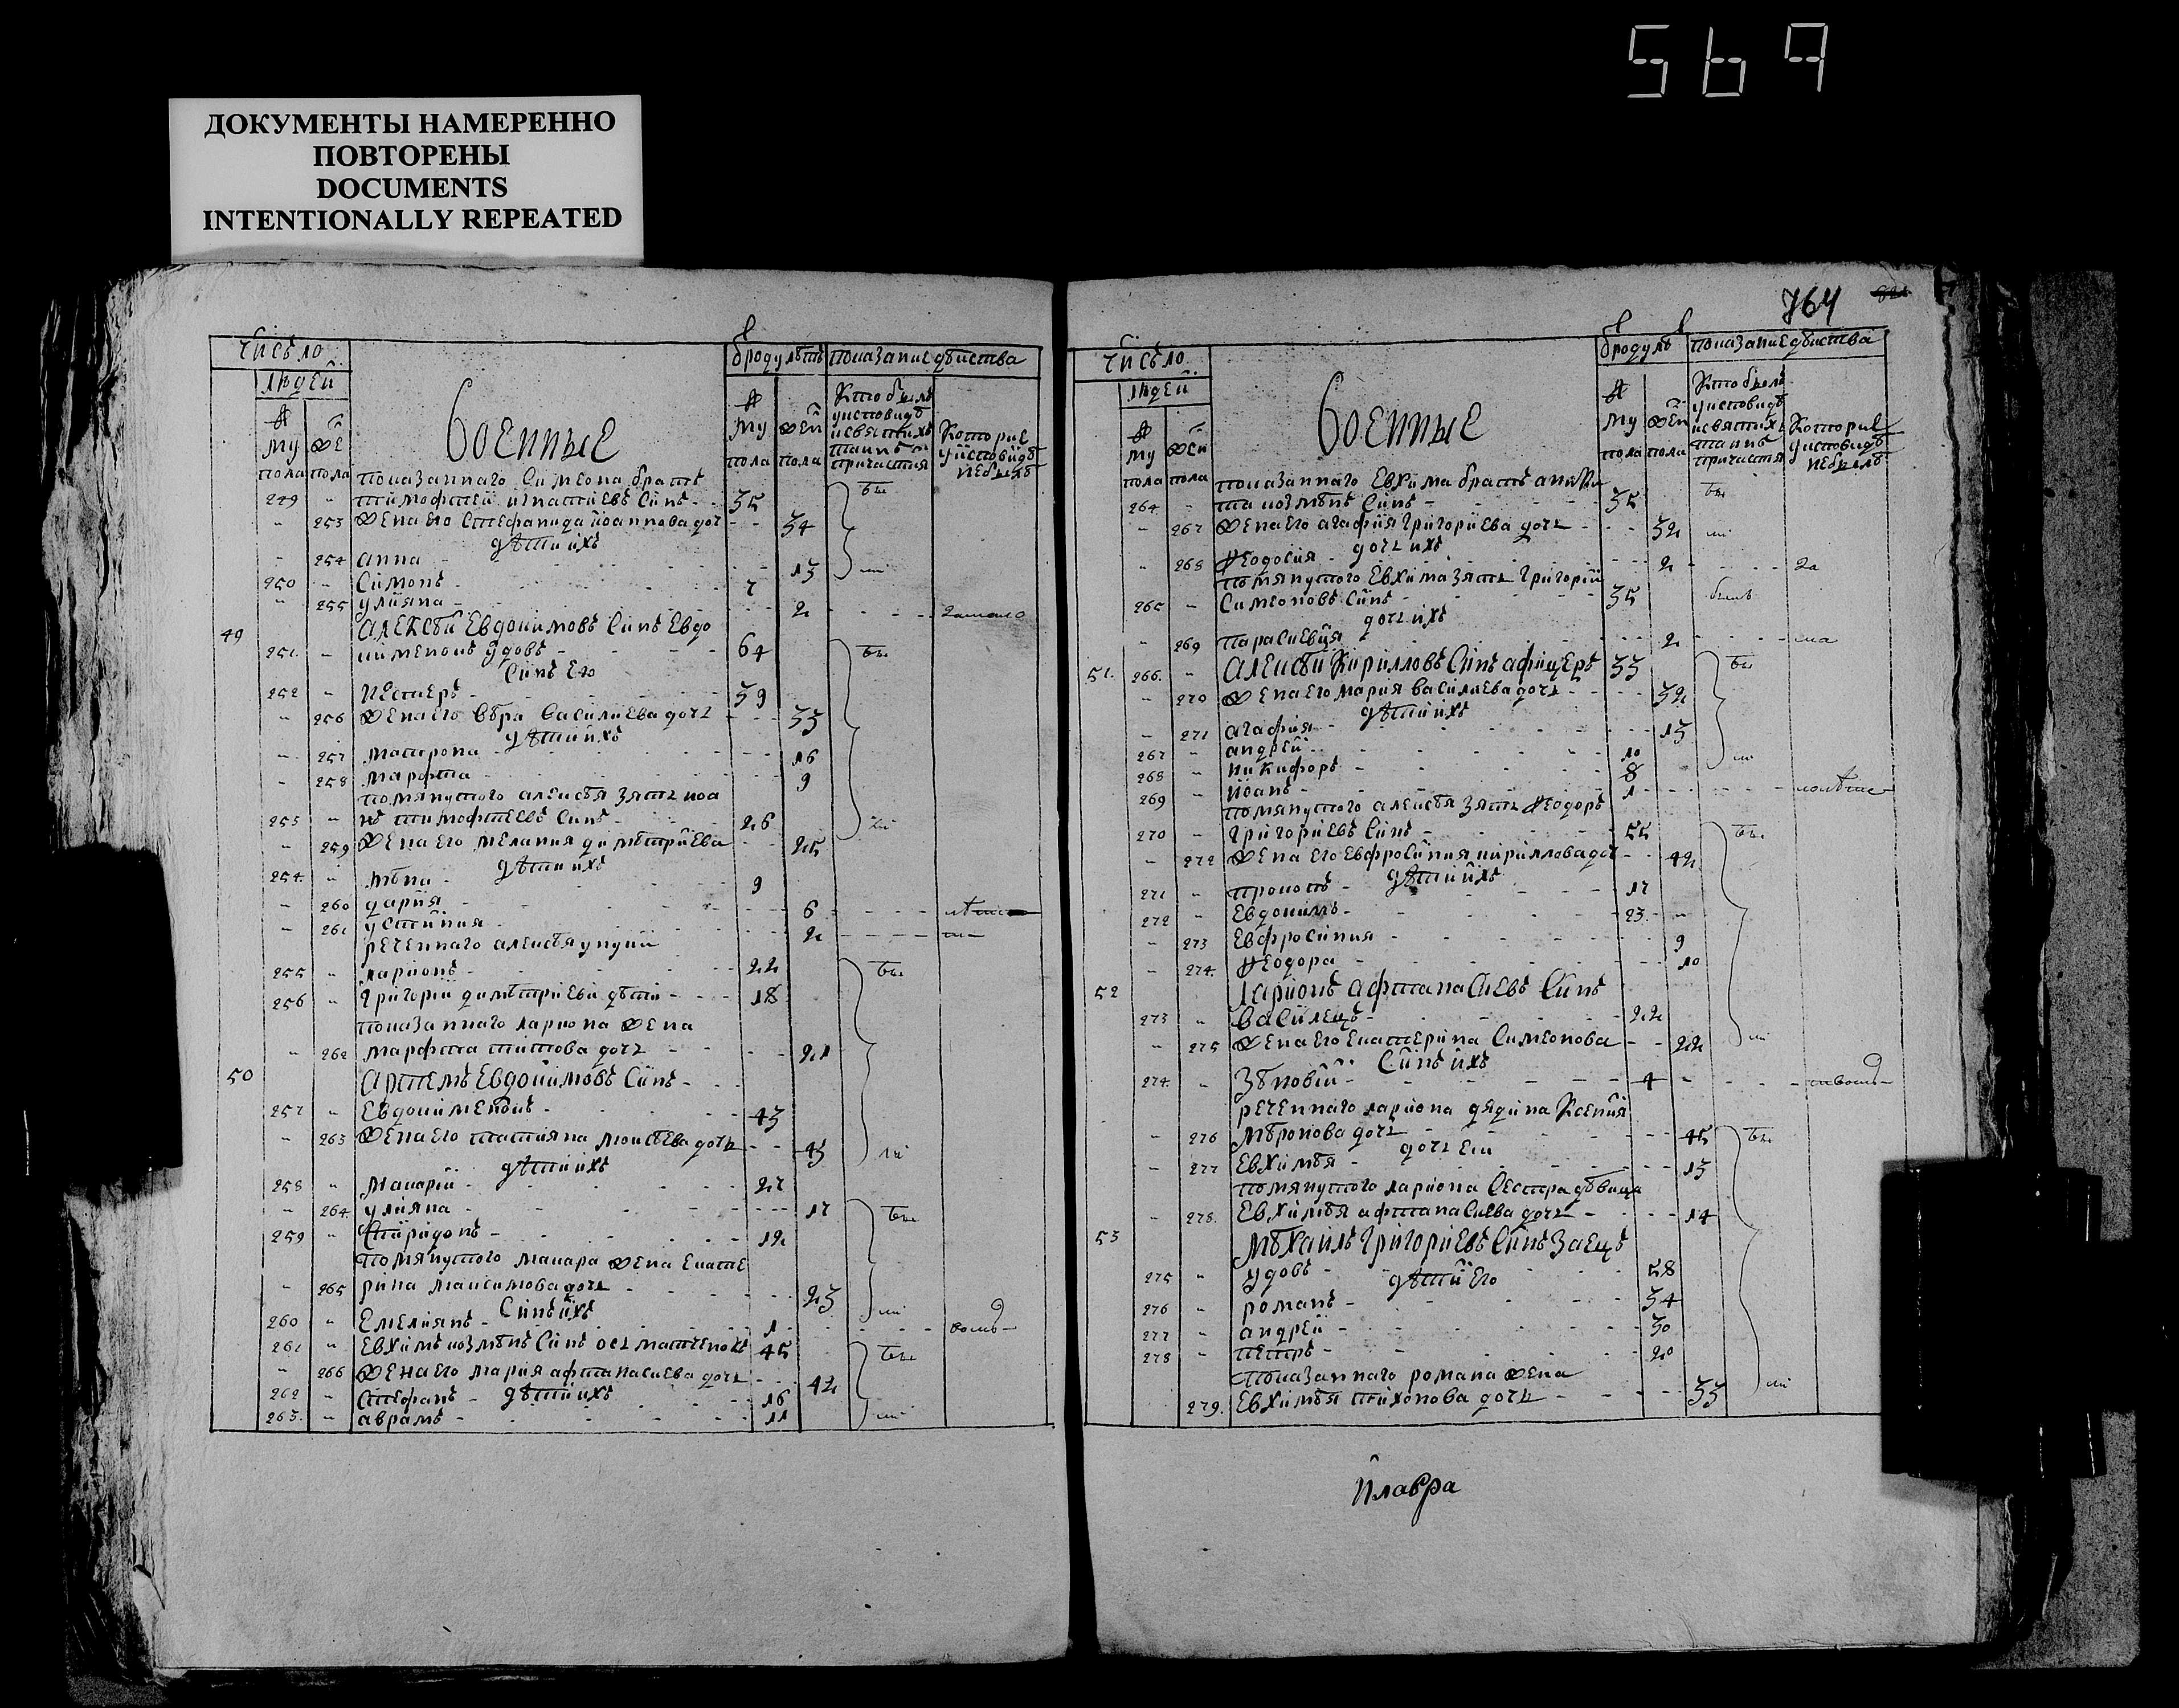 569
ДОКУМЕНТЫ НАМЕРЕННО
ПОВТОРЕНЫ
DOCUMENTS
INTENTIONALLY REPEATED
Число людей муж пола же пола Военные в роду лѣтъ муж пола жен пола показание действа
Кто былъ у исповиди и святихъ таинъ причастия Которие у исповиди небылъ
показаннаго Симеона братъ
249 " тимофтей игнатиевъ Синъ 35
" 253 жена его Стефанида иоаннова доч 34
дѣти ихъ
" 254 анна 13
250 " Симонъ 7
" 255 улияна 2
49 Алексѣй Евдокимовъ Синъ Евдо
251 " кименокъ удовъ 64
Синъ Его
252 " Нестеръ 39
" 256 жена его вѣра василиева дочь 33
дѣти ихъ
" 257 матрона 16
" 258 марфта 9
помянутого алексѣя зять иоа
253 " нъ тимофтеевъ Синъ 26
" 259 жена его мелания димѣтриева 25
дѣти ихъ
254 " мѣна 9
" 260 дария 6
" 261 устиния 2
реченнаго алексѣя унуки
255 " ларионъ 22
256 " григорий димѣтриеви дѣти 18
показаннаго лариона жена
" 262 марфта титова дочь 21
50 Артемъ Евдокимовъ Синъ
257 " Евдокименокъ 43
" 263 жена его татияна моисѣева дочь 43
дѣти ихъ
258 " макарий 27
" 264 улияна 17
259 " Спиридонъ 12
помянутого макара жена Екате
" 265 рина максимова дочь 23
Синъ ихъ
260 " Емелиянъ 1
261 " Евхимъ козмѣнъ Синъ осматченокъ 45
" 266 жена его мария афтанасиева дочь 42
262 " Стефанъ дѣти ихъ 16
263 " аврамъ 11
764
Число людей муж пола жен пола Военные в роду лѣ муж пола жен пола показание действа
Кто былъ у исповиди и святихъ таинъ причастия Которие у исповиди небылъ
показаннаго Евхима братъ
264 " козмѣнъ Синъ 35
" 267 жена его агафия григориева дочь 32
дочь ихъ
" 268 Феодосия 2
помянутого Евхима зять григорий
265 " Симеоновъ Синъ 35
дочь ихъ
" 269 параскевия 2
51 266 " Алексѣй Кирилловъ Синъ афицеръ 33
" 270 жена его мария василиева дочь 32
дѣти ихъ
" 271 агафия 13
267 " андрей 10
268 " никифоръ 8
269 " иоанъ 1
помянутого алексѣя зять Феодоръ
270 " григориевъ Синъ 55
" 272 жена его евфросиния кириллова доч 42
дѣти ихъ
271 " прокопъ 17
272 " Евдокимъ 23
" 273 Евфросиния 9
" 274 Феодора 10
52 Ларионъ афтанасиевъ Синъ
273 " василецъ 22
" 275 жена его екатерина Симеонова 22
Синъ ихъ
274 " зѣновий 4
реченнаго лариона дядина Ксения
" 276 мѣронова дочь 45
дочь ей
" 277 Евхимѣя 13
помянутого лариона Сестра дѣвица
" 278 Евхимѣя афтанасиева дочь 14
53 Мѣхаилъ григориевъ Синъ заецъ
275 " удовъ 58
дѣти его
276 " романъ 34
277 " андрей 30
278 " петръ 20
показаннаго романа жена
279 Евхимѣя тихонова дочь 33
И лавра